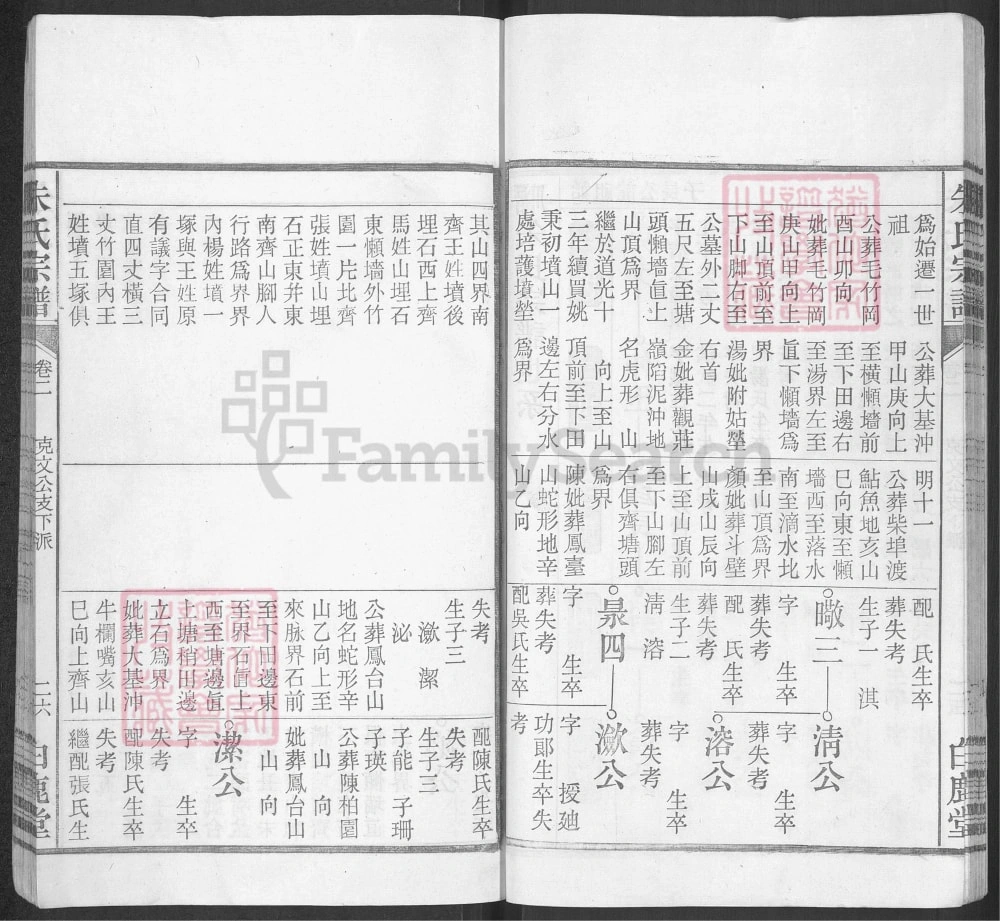 朱氏宗譜
白鹿堂
爲始遷一世
祖
公葬毛竹岡
酉山卯向
妣葬毛竹岡
庚山甲向上
至山頂前至
下山脚右至
公墓外二丈
五尺左至塘
頭懶墻眞上
山頂爲界
繼於道光十
三年續買姚
秉初墳山一
處培護墳塋
公葬大基沖
甲山庚向上
至橫懶墻前
至下田邊右
至湯界左至
眞下懶墻爲
界
湯妣附姑塋
右首
金妣葬觀莊
嶺䧟泥沖地
名虎形 山
向上至山
頂前至下田
邊左右分水
爲界
明十一
公葬柴埠渡
鮎魚地亥山
巳向東至懶
墻西至落水
南至滴水北
至山頂爲界
顏妣葬斗壁
山戌山辰向
上至山頂前
至下山腳左
右俱齊塘頭
爲界
陳妣葬鳳臺
山蛇形地辛
山乙向
配 氏生卒
葬失考
生子一 淇
暾三
字 生卒
葬失考
配 氏生卒
葬失考
生子二
淸 溶
晜四
字 生卒
葬失考
配吳氏生卒
淸公
字 生卒
葬失考
溶公
字 生卒
葬失考
潡公
字 授廸
功郞生卒失
考
其山四界南
齊王姓墳後
埋石西上齊
馬姓山埋石
東懶墻外竹
園一片北齊
張姓墳山埋
石正東幷東
南齊山腳人
行路爲界界
內楊姓墳一
塚與王姓原
有議字合同
直四丈橫三
丈竹園內王
姓墳五塚俱
失考
生子三
潡 潔
泌
公葬鳳台山
地名蛇形辛
山乙向上至
來脉界石前
至下田邊東
至界石眞上
西至塘邊眞
上塘稍田邊
立石爲界
妣葬大基沖
牛欄嘴亥山
巳向上齊山
配陳氏生卒
失考
生子三
子能 子珊
子瑛
公葬陳柏園
山 向
妣葬鳳台山
山 向
潔公
字 生卒
失考
配陳氏生卒
失考
繼配張氏生
朱氏宗譜
卷二
克文公支下派
二六
白鹿堂
FamilySearch